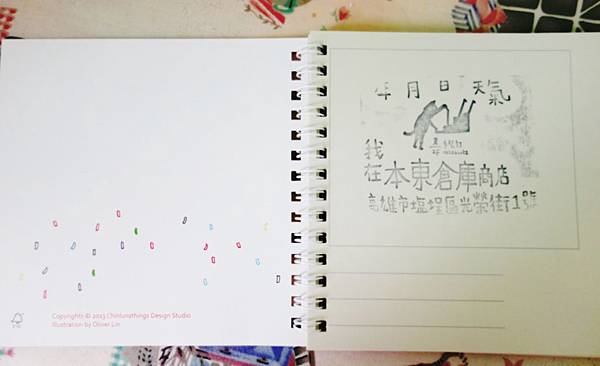 Copyrights © 2013 Chinlunsthings Design Studio
Illustration by Oliver Lin
年 月 日 天氣
我
在本東倉庫商店
高雄市塩埕區光榮街1號